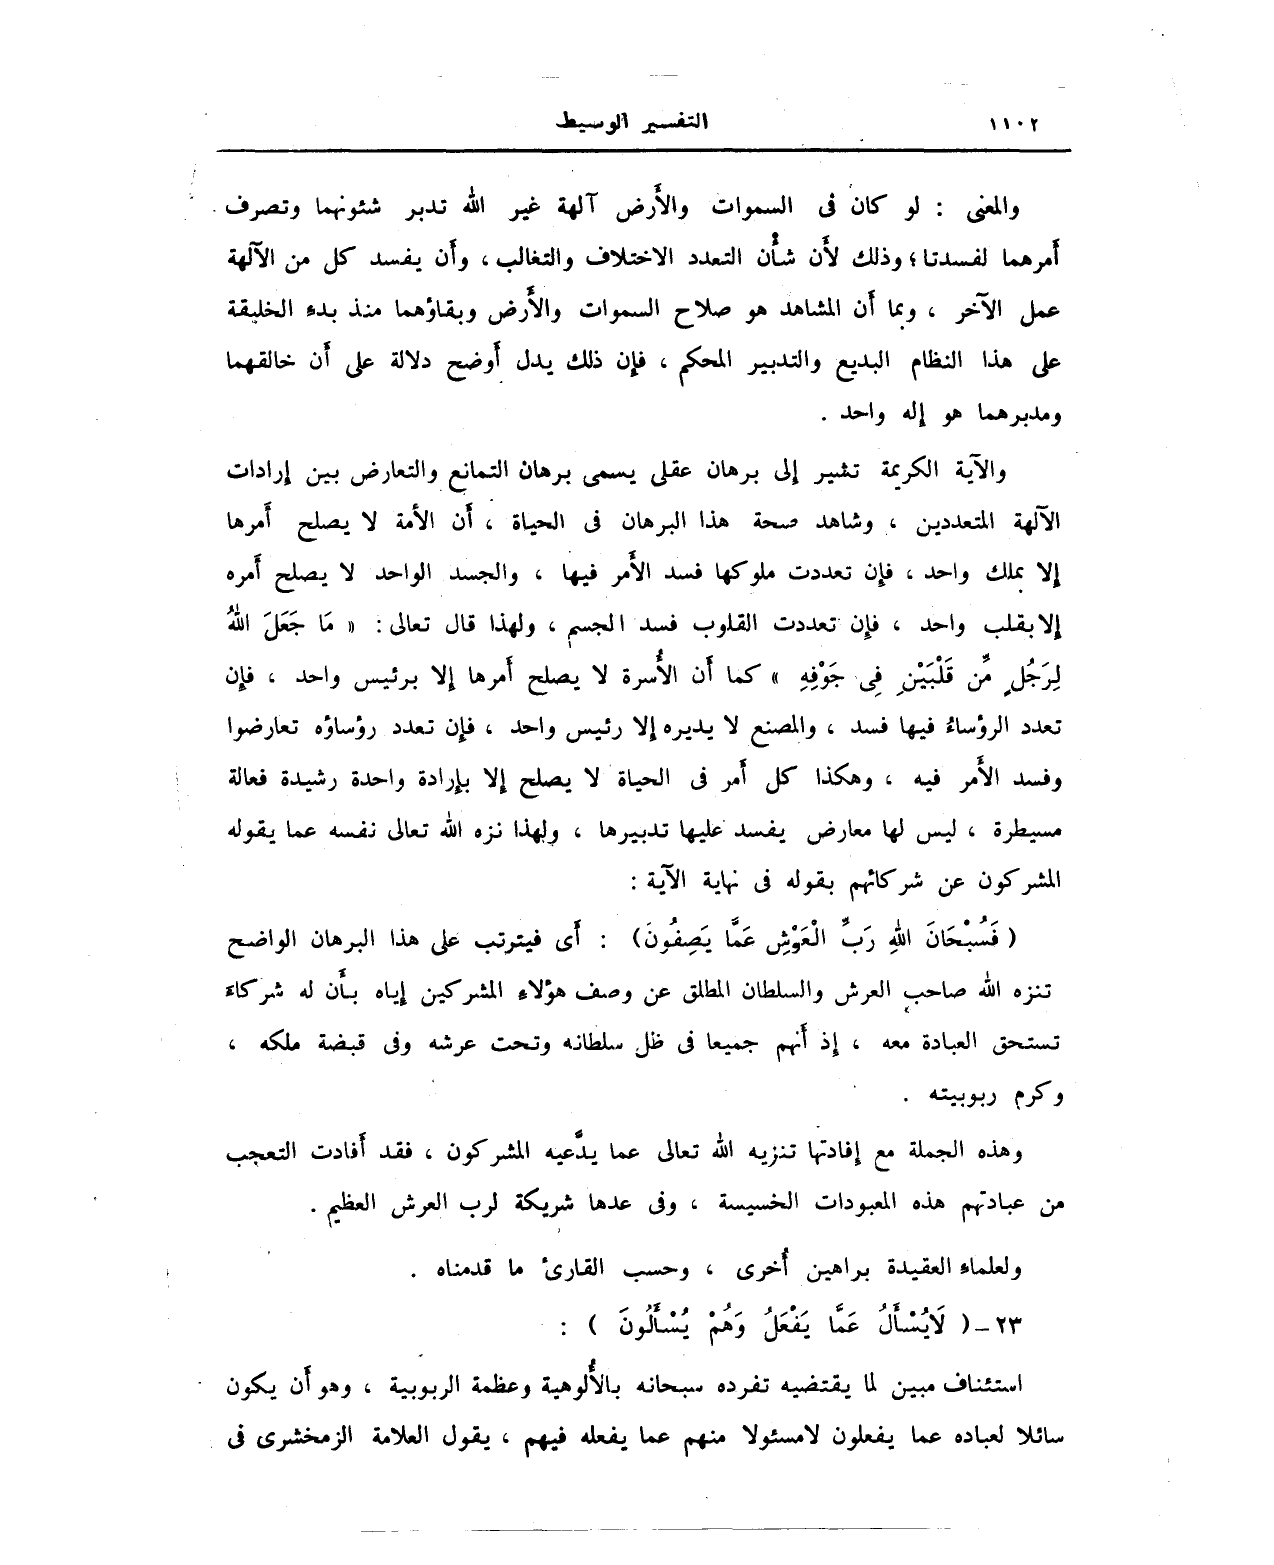 ١١٠٢ التفسير الوسيط
والمعنى : لو كان فى السموات والأرض آلهة غير الله تدبر شئونهما وتصرف
أمرهما لفسدتا؛ وذلك لأن شأن التعدد الاختلاف والتغالب ، وأن يفسد كل من الآلهة
عمل الآخر ، وبما أن المشاهد هو صلاح السموات والأرض وبقاؤهما منذ بدء الخليقة
على هذا النظام البديع والتدبير المحكم ، فإن ذلك يدل أوضح دلالة على أن خالقهما
ومدبرهما هو إله واحد .
والآية الكريمة تشير إلى برهان عقلى يسمى برهان التمانع والتعارض بين إرادات
الآلهة المتعددين ، وشاهد صحة هذا البرهان فى الحياة ، أن الأمة لا يصلح أمرها
إلا بملك واحد ، فإن تعددت ملوكها فسد الأمر فيها ، والجسد الواحد لا يصلح أمره
إلا بقلب واحد ، فإن تعددت القلوب فسد الجسم ، ولهذا قال تعالى : « مَا جَعَلَ اللهُ
لِرَجُلٍ مِّن قَلْبَيْنِ فِى جَوْفِهِ » كما أن الأُسرة لا يصلح أمرها إلا برئيس واحد ، فإن
تعدد الرؤساءُ فيها فسد ، والمصنع لا يديره إلا رئيس واحد ، فإن تعدد رؤساؤه تعارضوا
وفسد الأمر فيه ، وهكذا كل أمر فى الحياة لا يصلح إلا بإرادة واحدة رشيدة فعالة
مسيطرة ، ليس لها معارض يفسد عليها تدبيرها ، ولهذا نزه الله تعالى نفسه عما يقوله
المشركون عن شركائهم بقوله فى نهاية الآية :
( فَسُبْحَانَ اللهِ رَبِّ الْعَرْشِ عَمَّا يَصِفُونَ) : أى فيترتب على هذا البرهان الواضح
تنزه الله صاحب العرش والسلطان المطلق عن وصف هؤلاء المشركين إياه بأن له شركاء
تستحق العبادة معه ، إذ أنهم جميعا فى ظل سلطانه وتحت عرشه وفى قبضة ملكه ،
وكرم ربوبيته .
وهذه الجملة مع إفادتها تنزيه الله تعالى عما يدَّعيه المشركون ، فقد أفادت التعجب
من عبادتهم هذه المعبودات الخسيسة ، وفى عدها شريكة لرب العرش العظيم .
ولعلماء العقيدة براهين أُخرى ، وحسب القارئ ما قدمناه .
٢٣ ــ ( لَايُسْأَلُ عَمَّا يَفْعَلُ وَهُمْ يُسْأَلُونَ ) :
استئناف مبين لما يقتضيه تفرده سبحانه بالأُلوهية وعظمة الربوبية ، وهو أن يكون
سائلا لعباده عما يفعلون لامسئولا منهم عما يفعله فيهم ، يقول العلامة الزمخشرى فى